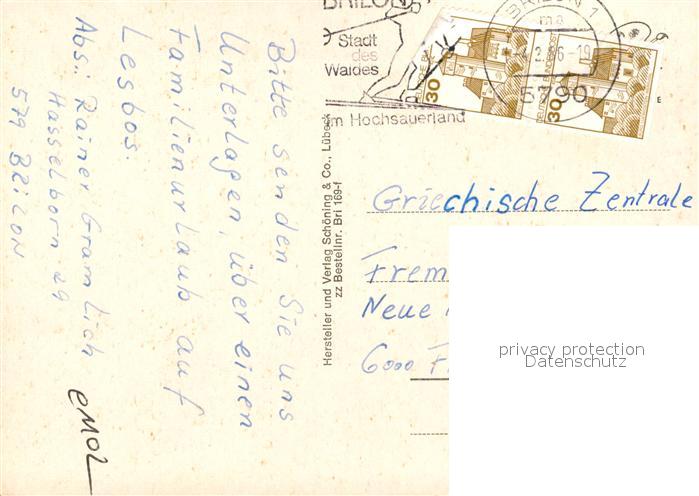 Bitte senden Sie uns
Unterlagen, über einen
Familienurlaub auf
Lesbos.
Abs.: Rainer Gramlich
Hasselborn 29
579 BRILON
Hersteller und Verlag Schöning & Co., Lübeck
zz Bestellnr. Bri 169-f
BRILON
Stadt
des
Waldes
im Hochsauerland
BRILON 1
ma
5790
30
30
Griechische Zentrale
Frem
Neue
6000 F
privacy protection
Datenschutz